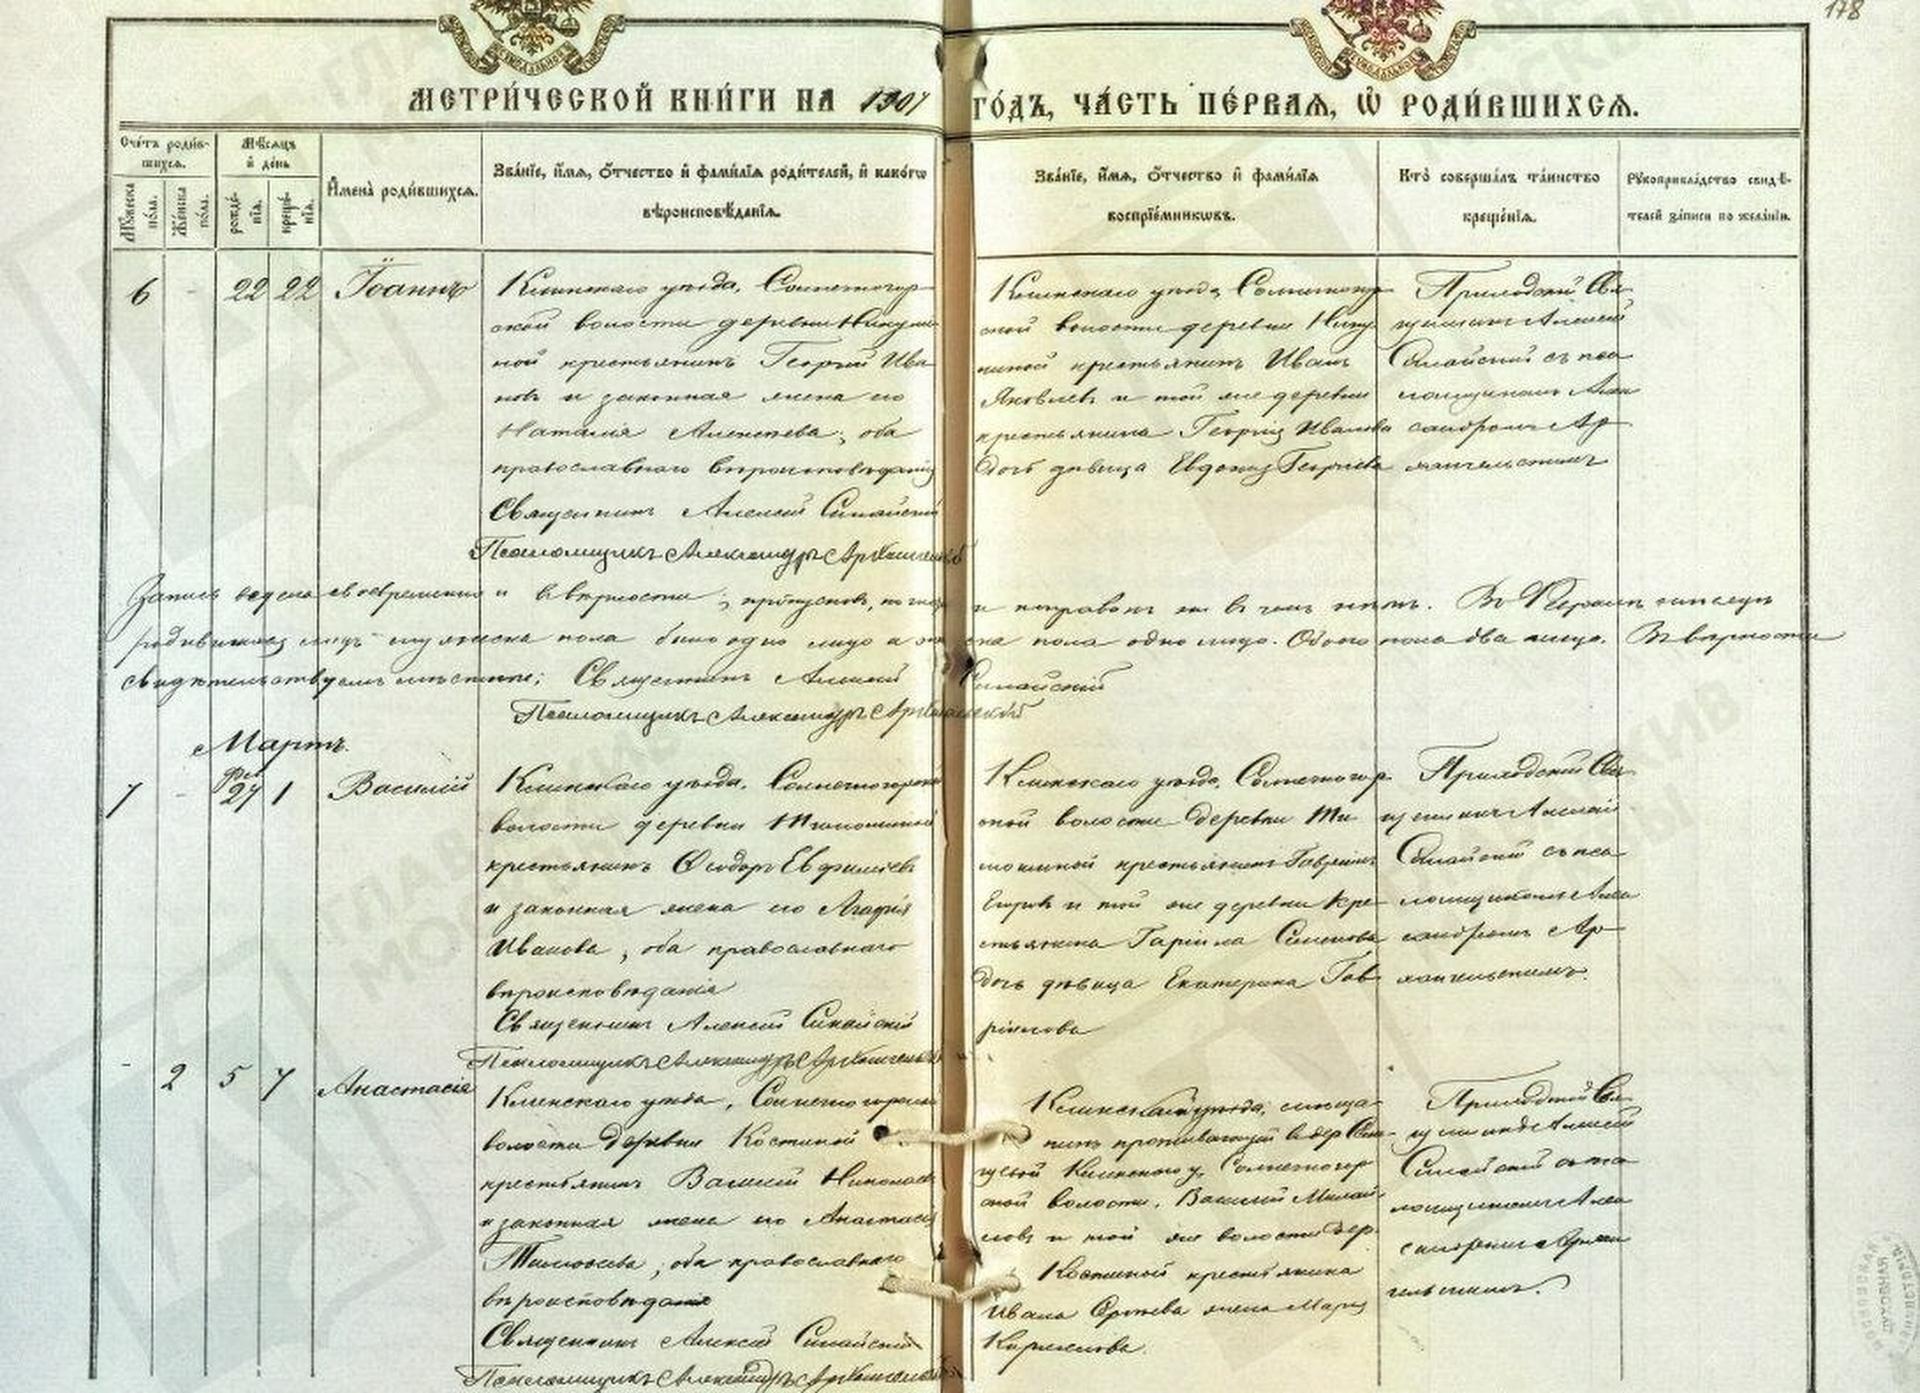 178
МЕТРИ́ЧЕСКОЙ КНИ́ГИ НА 1907 ГО́ДЪ, ЧА́СТЬ ПЕ́РВАЯ, Ѡ РОДИ́ВШИХСЯ.
Сче́тъ роди́в-
шихся.
Мѣ́сяцъ
и́ де́нь
Мꙋ́жеска
по́ла.
Же́нска
по́ла.
рожде́-
нїя.
креще́-
нїя.
И́мена̀ роди́вшихся.
Зва́нїе, и́мя, о́тчество и́ фами́лїя роди́телей, и́ како́гѡ
вѣроисповѣ́данїя.
Зва́нїе, и́мя, о́тчество и́ фами́лїя
воспрїе́мникѡвъ.
Кто̀ соверша́лъ та́инство
креще́нїя.
Рꙋкоприкла́дство свидѣ́-
телей за́писи по жела́нїю.
6 - 22 22 Іоаннъ
Клинскаго уѣзда, Солнечногор
ской волости деревни Никули
ной крестьянинъ Георгій Ива
новъ и законная жена его
Наталія Алексѣева; оба
православнаго вѣроисповѣданія
Священникъ Алексій Синайскій
Псаломщикъ Александръ Архангельскій
Клинскаго уѣзда, Солнечногор
ской волости деревни Нику
линой крестьянинъ Иванъ
Яковлевъ и той же деревни
крестьянина Георгія Иванова
дочь дѣвица Евдокія Георгіева
Приходскій Свя
щенникъ Алексій
Синайскій съ пса
ломщикомъ Алек
сандромъ Ар
хангельскимъ
Запись ведена своевременно и вѣрности; пропусковъ, и поправокъ ни въ чемъ нѣтъ. Въ Февралѣ мѣсяцѣ
родившихся лицъ мужеска пола было одно лицо а женска пола одно лицо. Обоего пола два лица. Въ вѣрности
свидѣтельствуемъ Священникъ Алексій Синайскій
Псаломщикъ Александръ Архангельскій
Мартъ.
7 - Фев 27 1 Василій
Клинскаго уѣзда, Солнечногорской
волости деревни Тимониной
крестьянинъ Ѳеодоръ Евфиміевъ
и законная жена его Агафія
Иванова, оба православнаго
вѣроисповѣданія
Священникъ Алексій Синайскій
Псаломщикъ Александръ Архангельскій
Клинскаго уѣзда, Солнечногор
ской волости деревни Ти
мониной крестьянинъ Гавріилъ
Егоровъ и той же деревни кре
стьянина Гаріила Семенова
дочь дѣвица Екатерина Гав
ріилова
Приходскій Свя
щенникъ Алексій
Синайскій съ пса
ломщикомъ Алек
сандромъ Ар
хангельскимъ.
- 2 5 7 Анастасія
Клинскаго уѣзда, Солнечногорской
волости деревни Костиной
крестьянинъ Василій Николаевъ
и законная жена его Анастасія
Тимоѳеева, оба православнаго
вѣроисповѣданія
Священникъ Алексій Синайскій
Псаломщикъ Александръ Архангельскій
Клинскій уѣзда, мѣща
нинъ проживающій въ дер
Клинскаго у, Солнечногор
ской волости, Василій Михай
ловъ и той же волости дер.
Костиной крестьянина
Ивана Сергѣева жена Марія
Кириллова.
Приходской Свя
щенникъ Алексій
Синайскій съ пса
ломщикомъ Алек
сандромъ Архан
гельскимъ.